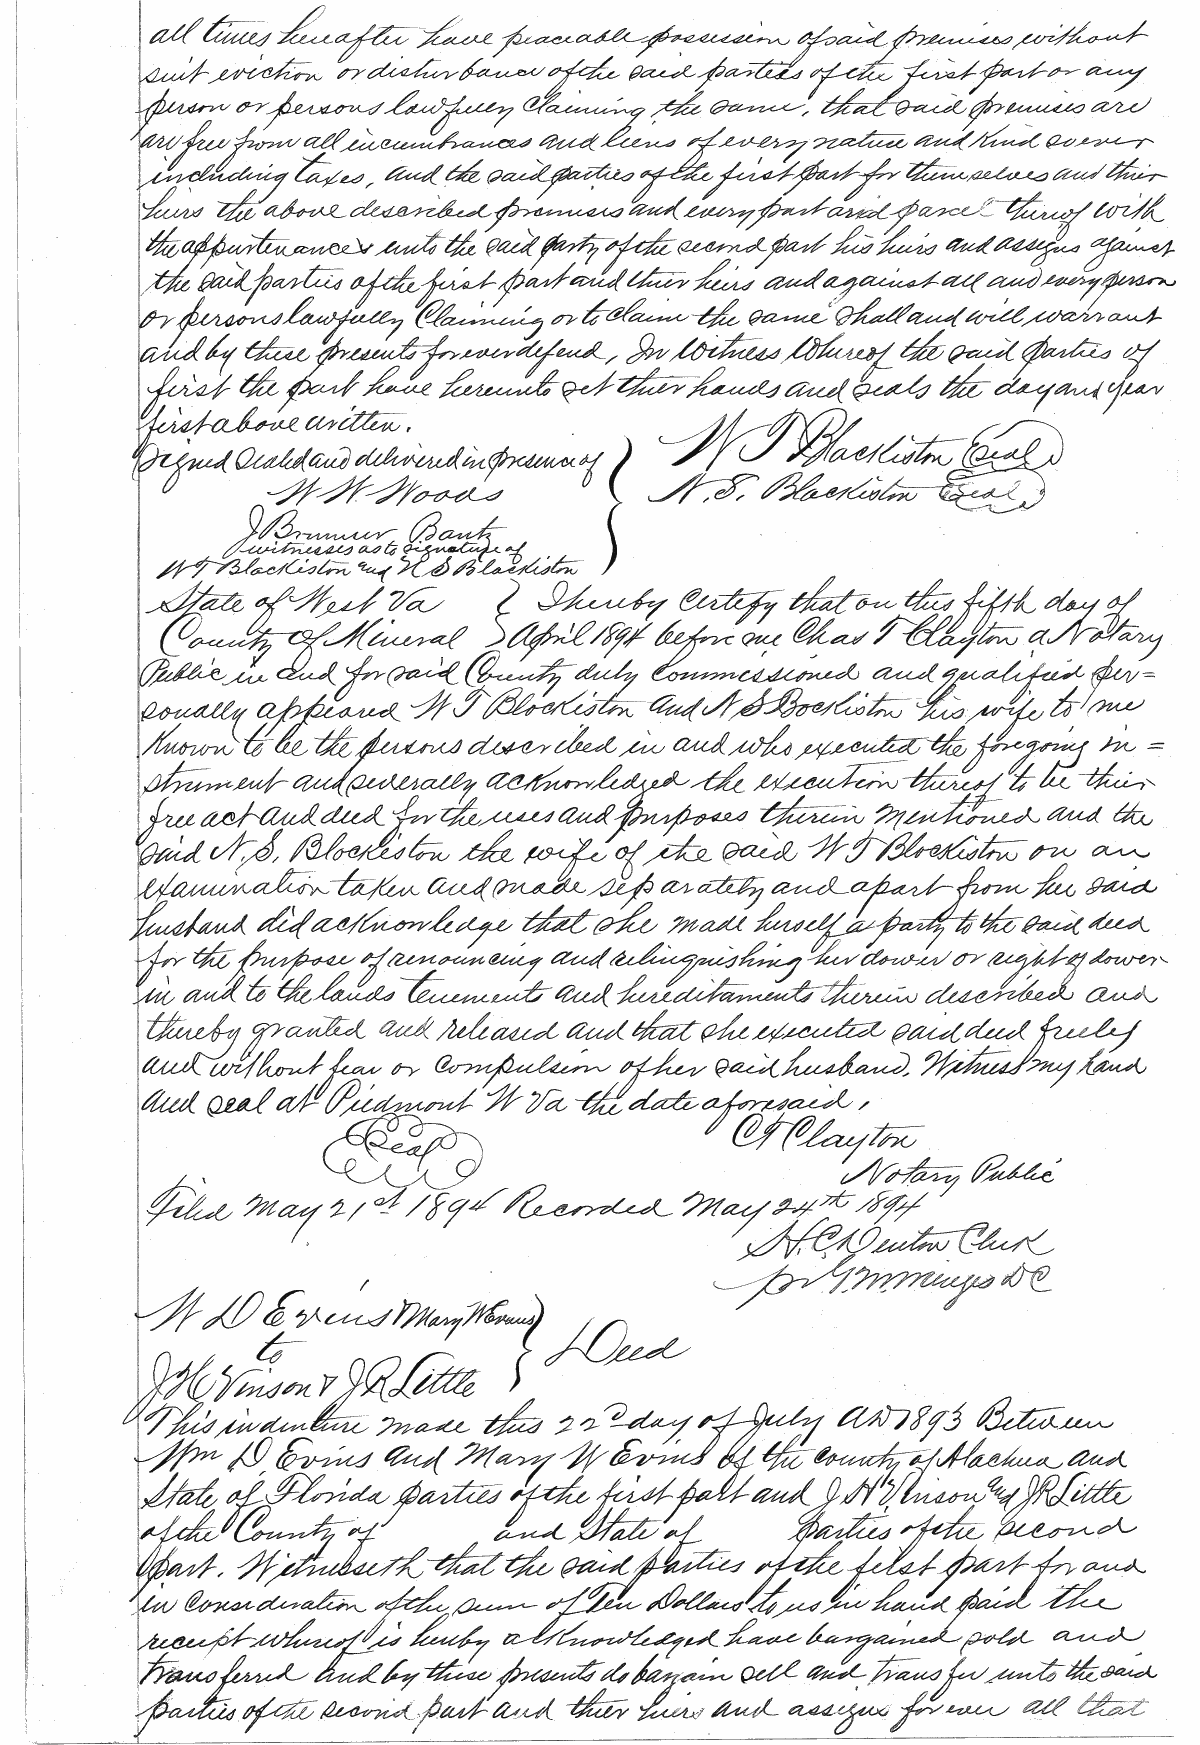 all times hereafter have peaceable possession of said premises without
suit eviction or disturbance of the said parties of the first part or any
person or persons lawfully Claiming the same, that said premises are
are free from all incumbrances and liens of every nature and Kind soever
including taxes, and the said parties of the first part for themselves and thier
heirs the above described premises and every part and parcel thereof with
the appurtenances unto the said party of the second part his heirs and assigns against
the said parties of the first part and thier heirs and against all and every person
or persons lawfully Claiming or to claim the same shall and will warrant
and by these presents forever defend, In Witness Whereof the said parties of
first the part have hereunto set thier hands and seals the day and year
first above written.
Signed Sealed and delivered in presence of } W T Blackiston (Seal)
W W Woods N. S. Blackiston (Seal)
J Brunner Bantz
witnesses as to signature of
W T Blackiston and N S Blackiston
State of West Va } I hereby Certify that on this fifth day of
County of Mineral } April 1894 before me Chas T Clayton a Notary
Public in and for said County duly Commissioned and qualified per=
sonally appeared W T Blockiston and N S Bockiston his wife to me
Known to be the persons described in and who executed the foregoing in=
strument and severally acknowledged the execution thereof to be thier
free act and deed for the uses and purposes therein mentioned and the
said N. S. Blockiston the wife of the said W T Blockiston on an
examination taken and made separately and apart from her said
husband did acknowledge that she made herself a party to the said deed
for the purpose of renouncing and relinquishing her dower or right of dower
in and to the lands tenements and hereditaments therein described and
thereby granted and released and that she executed said deed freely
and without fear or compulsion of her said husband. Witness my hand
and seal at Piedmont W Va the date aforesaid,
(Seal) C T Clayton
Notary Public
Filed May 21st 1894 Recorded May 24th 1894
H. C. Denton Clerk
D C
W D Evins & Mary W Evans }
to } Deed
J H Vinson & J R Little
This indenture made this 22d day of July AD 1893 Between
Wm D Evins and Mary W Evins of the county of Alachua and
State of Florida parties of the first part and J H Vinson and J R Little
of the County of and State of parties of the second
part. Witnesseth that the said parties of the first part for and
in consideration of the sum of Ten Dollars to us in hand paid the
receipt whereof is hereby acknowledged have bargained sold and
transferred and by these presents do bargain sell and transfer unto the said
parties of the second part and thier hiers and assigns for ever all that